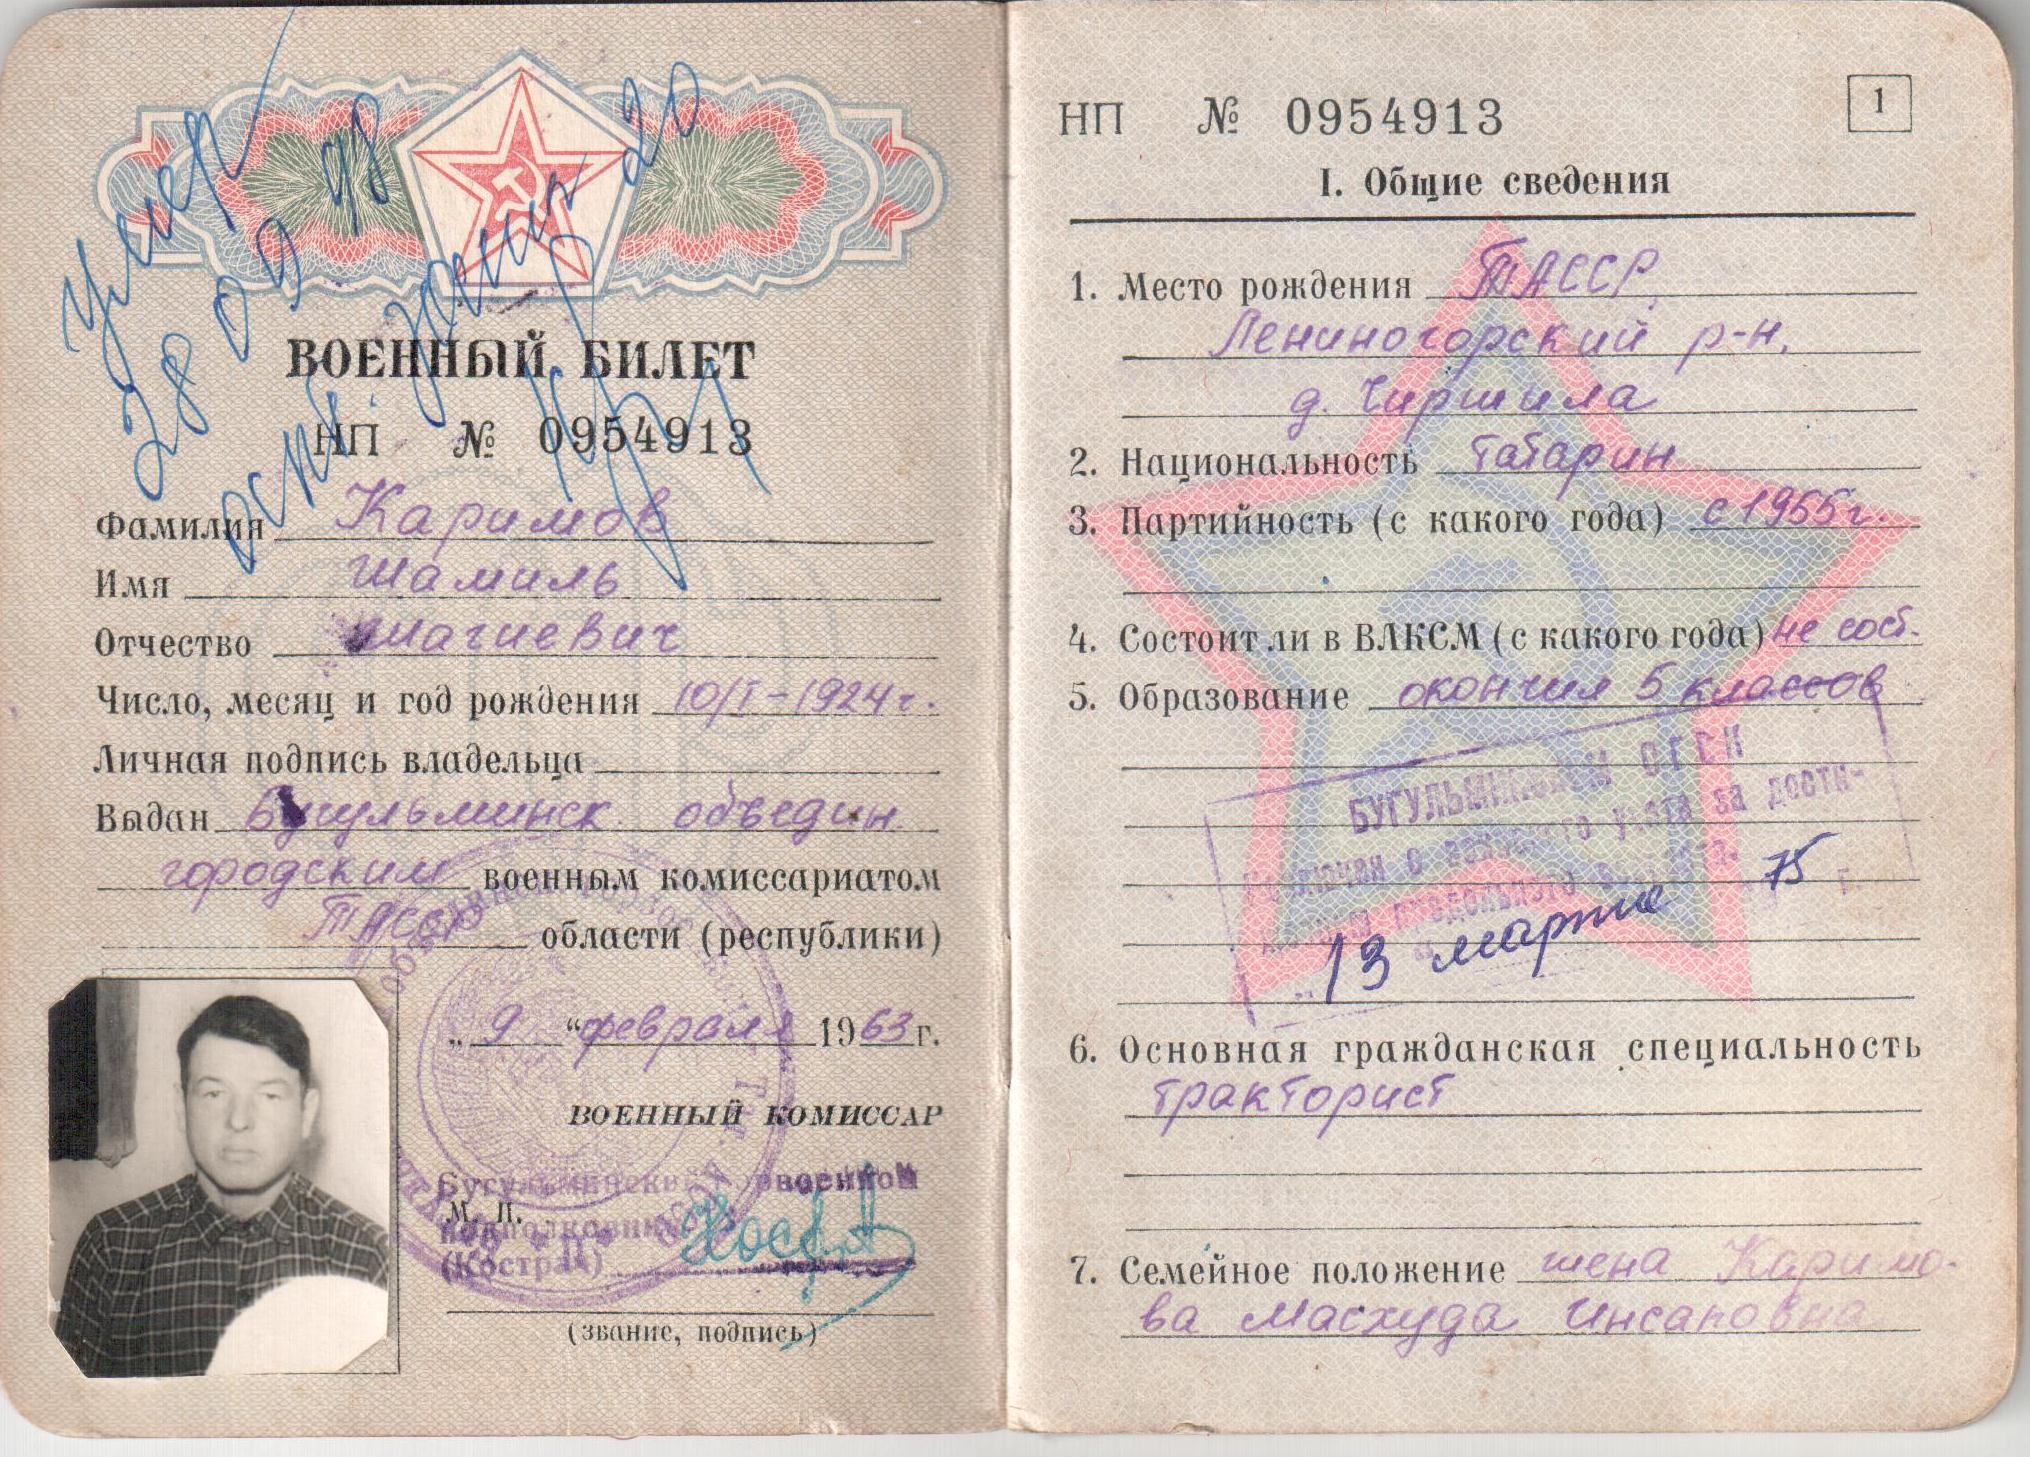 Умер
28 09 98
ВОЕННЫЙ БИЛЕТ
НП № 0954913
Фамилия Каримов
Имя Шамиль
Отчество Шагиевич
Число, месяц и год рождения 10/I-1924 г.
Личная подпись владельца
Выдан Бугульминск. объедин.
городским военным комиссариатом
ТАССР области (республики)
„ 9 “ февраля 1963 г.
ВОЕННЫЙ КОМИССАР
Бугульминский
М. П. подполковник
(звание, подпись)
НП № 0954913
1
I. Общие сведения
1. Место рождения ТАССР,
Лениногорский р-н,
д. Чиршила
2. Национальность татарин
3. Партийность (с какого года) с 1955 г.
4. Состоит ли в ВЛКСМ (с какого года) не сост.
5. Образование окончил 5 классов
БУГУЛЬМИНСКИМ ОГВК
Исключен с воинского учета за дости-
жением предельного возраста.
13 марта 75 г.
6. Основная гражданская специальность
тракторист
7. Семейное положение жена Каримо-
ва Масхуда Инсановна